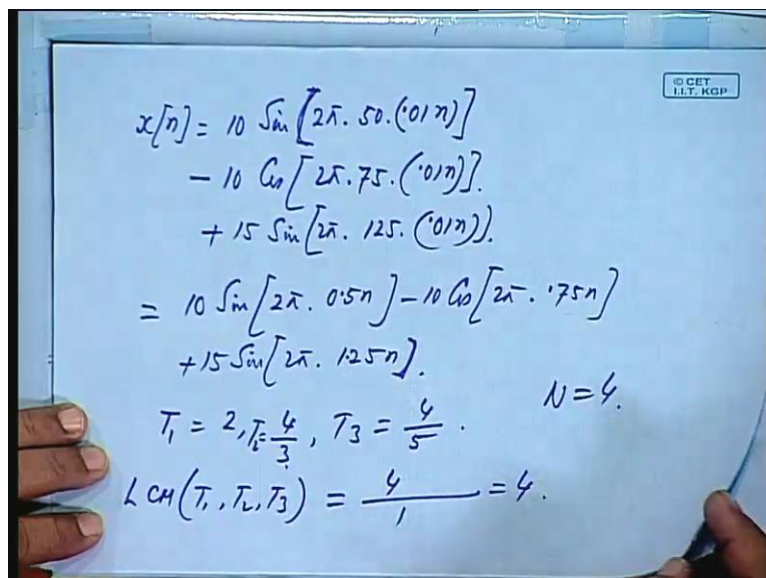 © CET
I.I.T. KGP
x[n] = 10 Sin[2π. 50. (.01n)]
- 10 Cos[2π. 75. (.01n)].
+ 15 Sin[2π. 125. (.01n)].
= 10 Sin[2π. 0.5n] - 10 Cos[2π. .75n]
+ 15 Sin[2π. 1.25n].
N = 4.
T₁ = 2, T₂ = 4/3, T3 = 4/5.
LCM(T₁, T₂, T3) = 4/1 = 4.